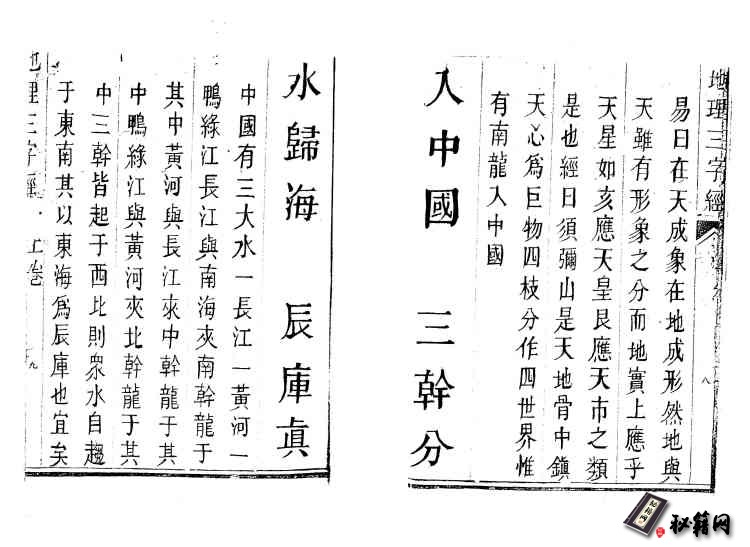 地理三字經
八
易曰在天成象在地成形然地與
天雖有形象之分而地實上應乎
天星如亥應天皇艮應天市之類
是也經曰須彌山是天地骨中鎮
天心爲巨物四枝分作四世界惟
有南龍入中國
入中國 三幹分
水歸海 辰庫眞
中國有三大水一長江一黃河一
鴨綠江長江與南海夾南幹龍于
其中黃河與長江夾中幹龍于其
中鴨綠江與黃河夾北幹龍于其
中三幹皆起于西北則眾水自趨
于東南其以東海爲辰庫也宜矣
地理三字經 上卷
九
秘籍网